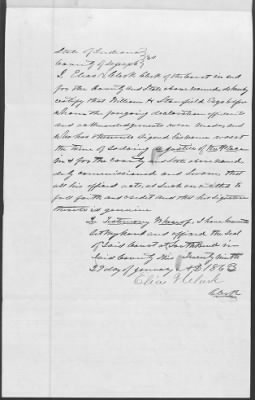 State of Indiana
County of St Joseph } SS
I Elias V Clark Clerk of the Court in and
for the County and State above named do hereby
certify that William H Stanfield Esqr before
whom the foregoing declaration affidavits
and acknowledgements were made and
who has thereunto signed his name was at
the time of so doing a justice of the Peace
in & for the county and state above named
duly commissioned and sworn that
all his official acts as such are entitled to
full faith and credit and that his signature
thereto is genuine
In Testimony Whereof I have hereunto
set my hand and affixed the Seal
of said Court at South Bend in
said County this Twenty ninth
29 day of January AD 1863
Elias V Clark
Clerk